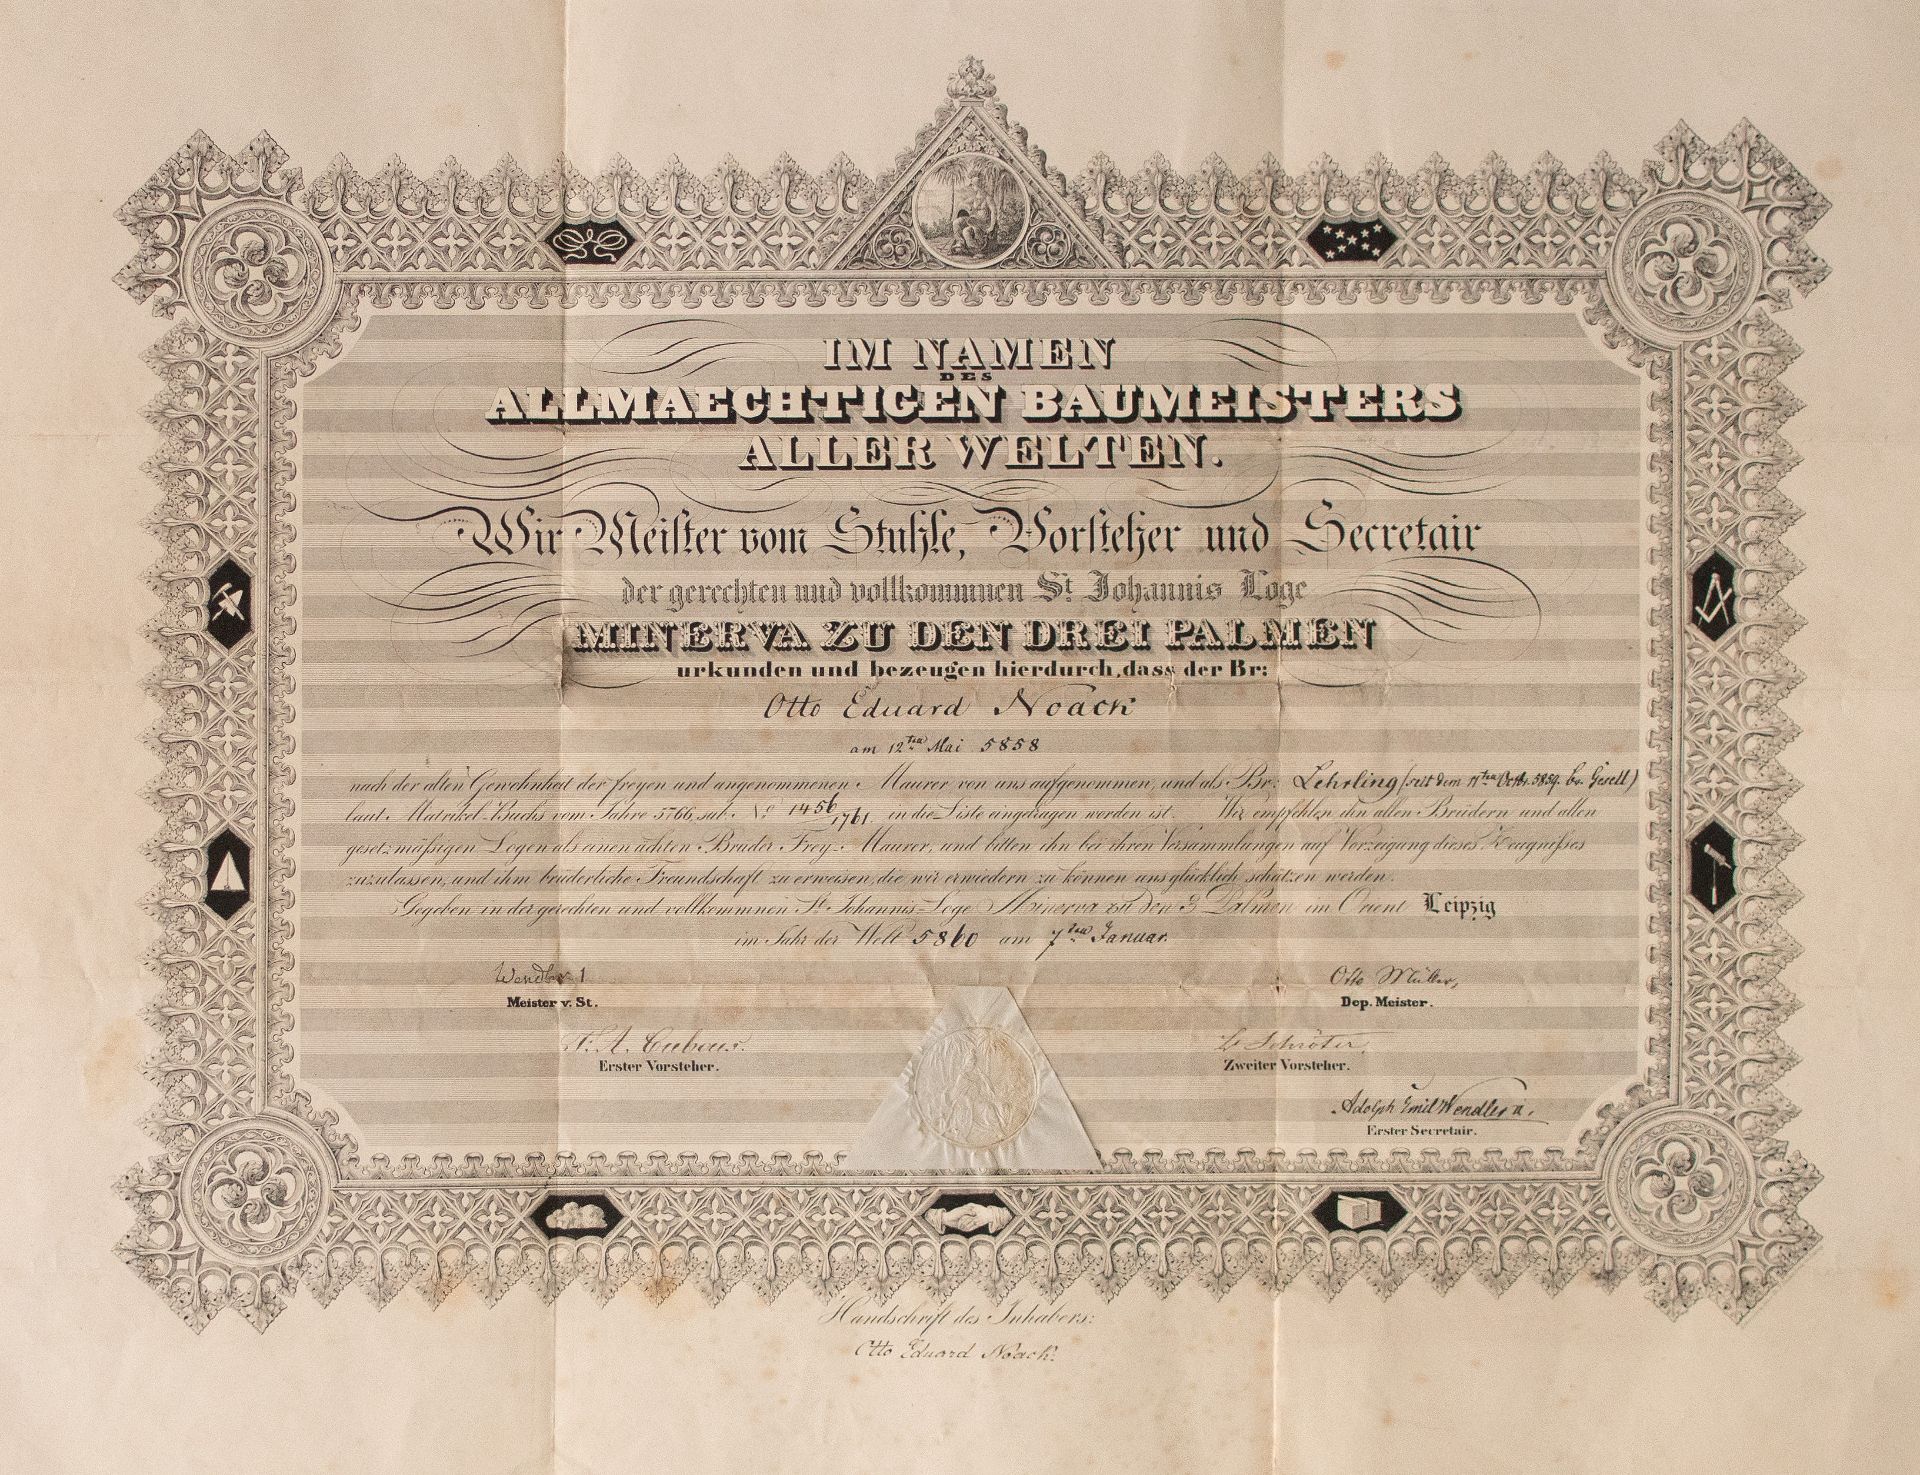 IM NAMEN
DES
ALLMAECHTIGEN BAUMEISTERS
ALLER WELTEN.
Wir Meister vom Stuhle, Vorsteher und Secretair
der gerechten und vollkommnen St. Johannis Loge
MINERVA ZU DEN DREI PALMEN
urkunden und bezeugen hierdurch, dass der Br:
Otto Eduard Noack
am 12ten Mai 5858
nach der alten Gewohnheit der freyen und angenommenen Maurer von uns aufgenommen, und als Br: Lehrling (seit dem 11ten Octbr. 5859. br. Gesell)
laut Matrikel-Buchs vom Jahre 5766, sub. No. 1456/1761. in die Liste eingetragen worden ist. Wir empfehlen ihn allen Brüdern und allen
gesetzmäßigen Logen als einen ächten Bruder Frey-Maurer, und bitten ihn bei ihren Versammlungen auf Vorzeigung dieses Zeugnißes
zuzulassen, und ihm brüderliche Freundschaft zu erweisen, die wir erwiedern zu können uns glücklich schätzen werden.
Gegeben in der gerechten und vollkommnen St. Johannis-Loge Minerva zu den 3 Palmen im Orient Leipzig
im Jahr der Welt 5860 am 7ten Januar.
Wendler I
Meister v. St.
Otto Müller,
Dep. Meister.
Erster Vorsteher.
Schröter
Zweiter Vorsteher.
Adolph Emil Wendler II.
Erster Secretair.
Handschrift des Inhabers:
Otto Eduard Noack.